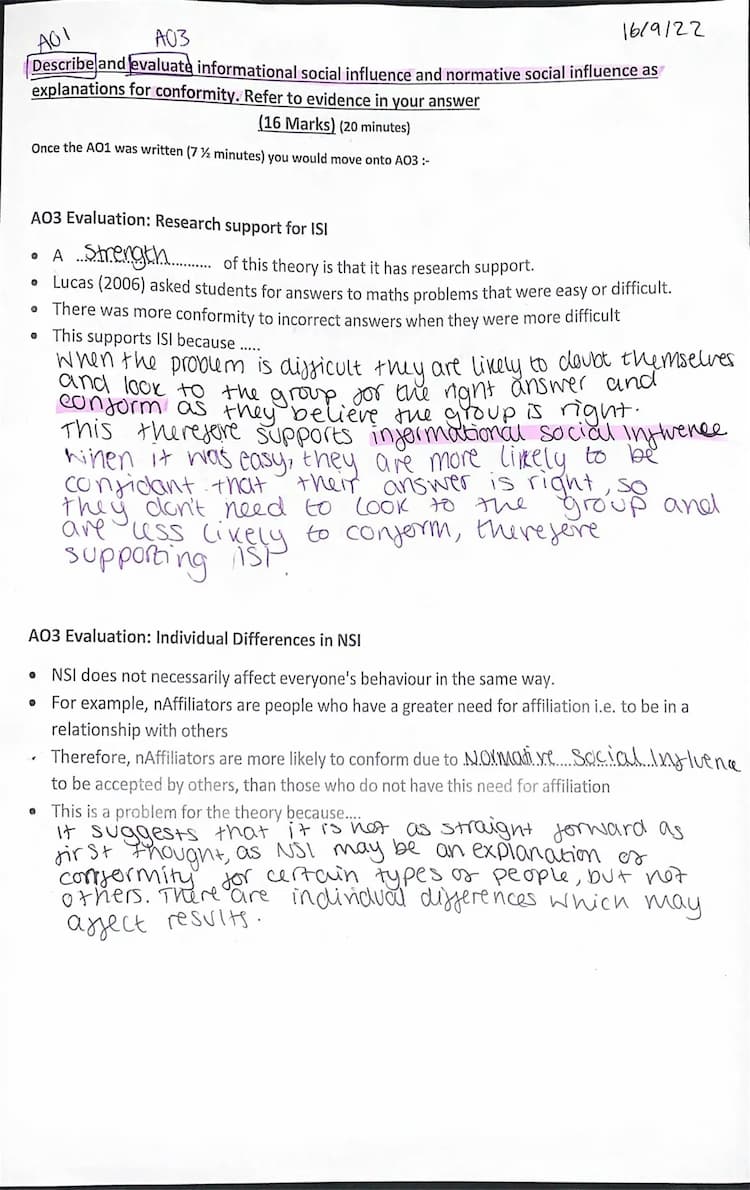 16/9/22
AO1 AO3
Describe and evaluate informational social influence and normative social influence as
explanations for conformity. Refer to evidence in your answer
(16 Marks) (20 minutes)
Once the AO1 was written (7 ½ minutes) you would move onto AO3 :-
AO3 Evaluation: Research support for ISI
• A ..Strength.......... of this theory is that it has research support.
• Lucas (2006) asked students for answers to maths problems that were easy or difficult.
• There was more conformity to incorrect answers when they were more difficult
• This supports ISI because .....
when the problem is difficult they are likely to doubt themselves
and look to the group for the right answer and
conform as they believe the group is right.
This therefore supports informational social influence
When it was easy, they are more likely to be
confidant that their answer is right, so
they don't need to look to the group and
are less likely to conform, therefore
supporting ISI.
AO3 Evaluation: Individual Differences in NSI
• NSI does not necessarily affect everyone's behaviour in the same way.
• For example, nAffiliators are people who have a greater need for affiliation i.e. to be in a
relationship with others
• Therefore, nAffiliators are more likely to conform due to Normative....Social..Influence
to be accepted by others, than those who do not have this need for affiliation
• This is a problem for the theory because....
It suggests that it is not as straight forward as
first thought, as NSI may be an explanation of
conformity for certain types of people, but not
others. There are individual differences which may
affect results.